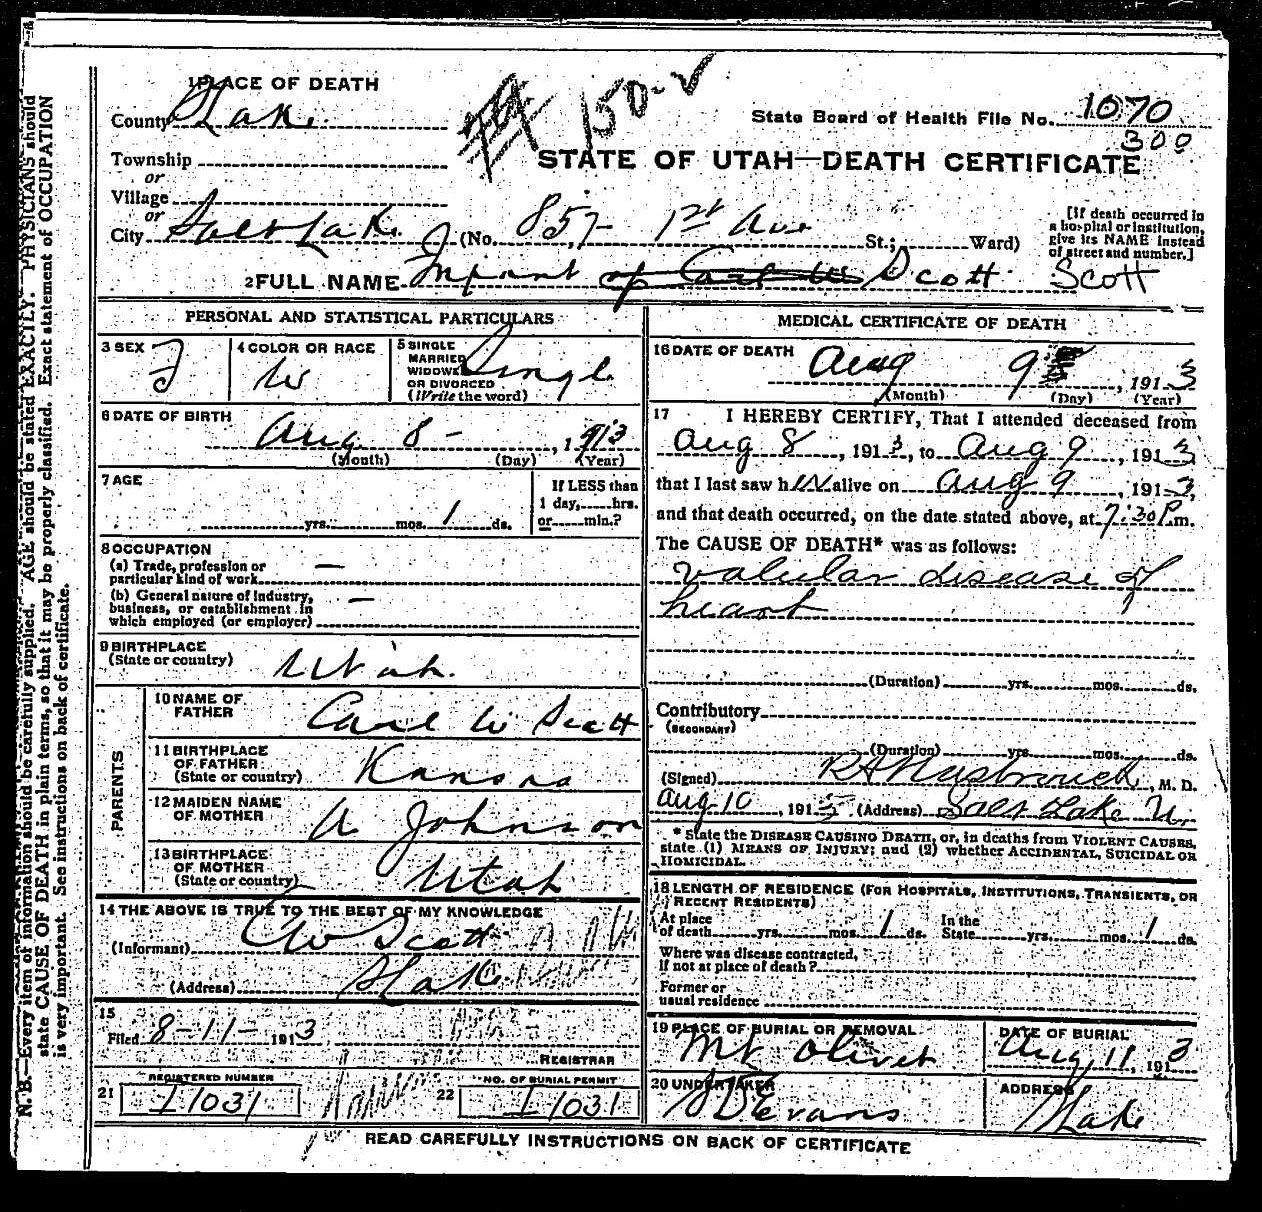 1 PLACE OF DEATH
County S Lake
150-
State Board of Health File No. 1070
300
STATE OF UTAH—DEATH CERTIFICATE
Township
or
Village
or
City Salt Lake (No. 857- 1st Ave St.; Ward)
[If death occurred in a hospital or institution, give its NAME instead of street and number.]
2 FULL NAME Infant of Carl W Scott Scott
PERSONAL AND STATISTICAL PARTICULARS
3 SEX F
4 COLOR OR RACE W
5 SINGLE MARRIED WIDOWED OR DIVORCED (Write the word) Single
6 DATE OF BIRTH Aug 8 - , 1913
(Month) (Day) (Year)
7 AGE yrs. mos. 1 ds.
If LESS than 1 day, hrs. or min.?
8 OCCUPATION
(a) Trade, profession or particular kind of work —
(b) General nature of Industry, business, or establishment in which employed (or employer) —
9 BIRTHPLACE (State or country) Utah.
PARENTS
10 NAME OF FATHER Carl W Scott
11 BIRTHPLACE OF FATHER (State or country) Kansas
12 MAIDEN NAME OF MOTHER A Johnson
13 BIRTHPLACE OF MOTHER (State or country) Utah
14 THE ABOVE IS TRUE TO THE BEST OF MY KNOWLEDGE
(Informant) CW Scott
(Address) S Lake
15
Filed 8-11- 1913
REGISTRAR
21 REGISTERED NUMBER I 1031
22 NO. OF BURIAL PERMIT I 1031
MEDICAL CERTIFICATE OF DEATH
16 DATE OF DEATH Aug 9 , 1913
(Month) (Day) (Year)
17 I HEREBY CERTIFY, That I attended deceased from
Aug 8 , 1913, to Aug 9 , 1913
that I last saw her alive on Aug 9 , 1913,
and that death occurred, on the date stated above, at 7:30 P.m.
The CAUSE OF DEATH* was as follows:
Valvular disease of
heart
(Duration) yrs. mos. ds.
Contributory
(SECONDARY)
(Duration) yrs. mos. ds.
(Signed) R A Hasbrouck, M. D.
Aug 10 , 1913 (Address) Salt Lake U.
* State the DISEASE CAUSING DEATH, or, in deaths from VIOLENT CAUSES, state (1) MEANS OF INJURY; and (2) whether ACCIDENTAL, SUICIDAL OR HOMICIDAL.
18 LENGTH OF RESIDENCE (FOR HOSPITALS, INSTITUTIONS, TRANSIENTS, OR RECENT RESIDENTS)
At place of death yrs. mos. 1 ds. In the State yrs. mos. 1 ds.
Where was disease contracted, If not at place of death?
Former or usual residence
19 PLACE OF BURIAL OR REMOVAL Mt Olivet
DATE OF BURIAL Aug 11, 1913
20 UNDERTAKER S D Evans
ADDRESS S Lake
READ CAREFULLY INSTRUCTIONS ON BACK OF CERTIFICATE
N. B.—Every item of information should be carefully supplied. AGE should be stated EXACTLY. PHYSICIANS should
state CAUSE OF DEATH in plain terms, so that it may be properly classified. Exact statement of OCCUPATION
is very important. See instructions on back of certificate.